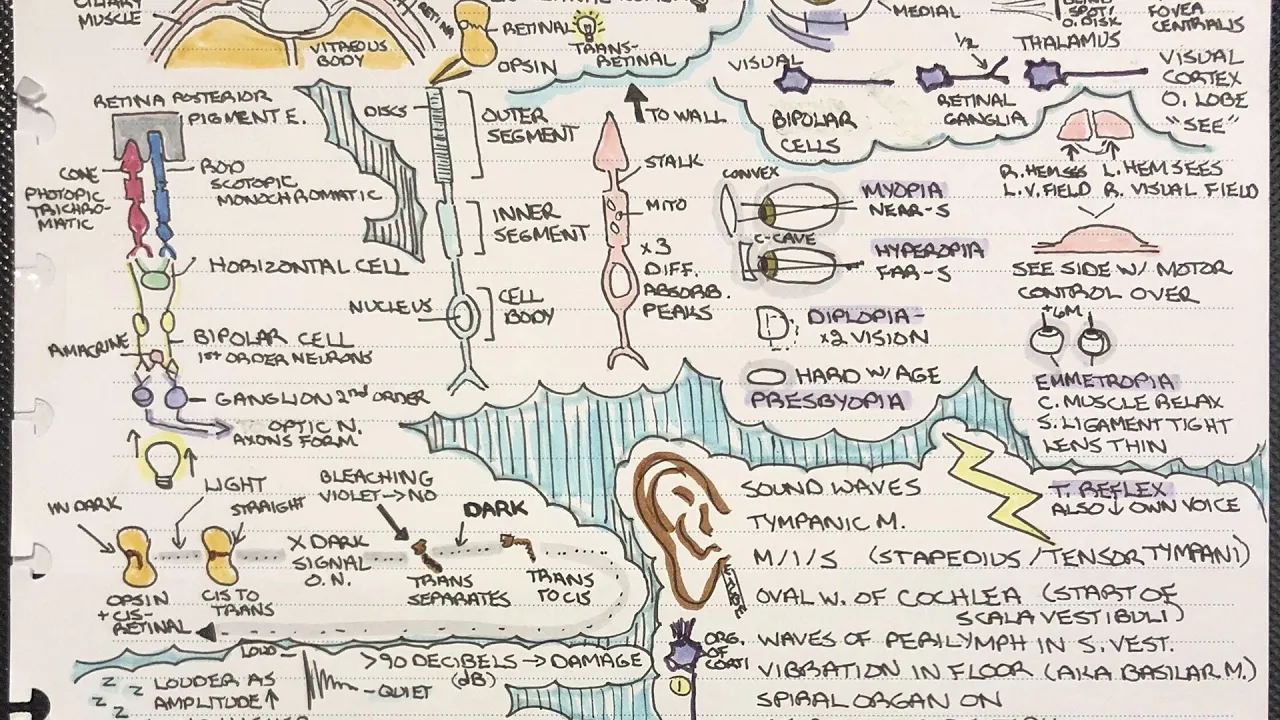 CILIARY
MUSCLE
VITREOUS
BODY
RETINAL
OPSIN
TRANS-
RETINAL
MEDIAL
SPOT/
O. DISK
FOVEA
CENTRALIS
VISUAL
1/2
THALAMUS
BIPOLAR
CELLS
RETINAL
GANGLIA
VISUAL
CORTEX
O. LOBE
"SEE"
RETINA POSTERIOR
PIGMENT E.
CONE
PHOTOPIC
TRICHRO-
MATIC
ROD
SCOTOPIC
MONOCHROMATIC
HORIZONTAL CELL
AMACRINE
BIPOLAR CELL
1ST ORDER NEURONS
GANGLION 2nd ORDER
OPTIC N.
AXONS FORM
DISCS
OUTER
SEGMENT
INNER
SEGMENT
NUCLEUS
CELL
BODY
TO WALL
STALK
MITO
x3
DIFF.
ABSORB.
PEAKS
CONVEX
MYOPIA
NEAR-S
C-CAVE
HYPEROPIA
FAR-S
DIPLOPIA-
x2 VISION
HARD W/ AGE
PRESBYOPIA
R. HEM SEES
L.V. FIELD
L. HEM SEES
R. VISUAL FIELD
SEE SIDE W/ MOTOR
CONTROL OVER
+6M
EMMETROPIA
C. MUSCLE RELAX
S. LIGAMENT TIGHT
LENS THIN
IN DARK
LIGHT
STRAIGHT
BLEACHING
VIOLET→NO
DARK
OPSIN
+ CIS-
RETINAL
CIS TO
TRANS
X DARK
SIGNAL
O.N.
TRANS
SEPARATES
TRANS
TO CIS
LOUDER AS
AMPLITUDE↑
LOUD
-QUIET
>90 DECIBELS→DAMAGE
(dB)
Z
Z
Z
SOUND WAVES
TYMPANIC M.
T. REFLEX
ALSO↓OWN VOICE
M/I/S (STAPEDIUS/TENSOR TYMPANI)
OVAL W. OF COCHLEA (START OF
SCALA VESTIBULI)
ORG.
OF
CORTI
1
WAVES OF PERILYMPH IN S. VEST.
VIBRATION IN FLOOR (AKA BASILAR M.)
SPIRAL ORGAN ON